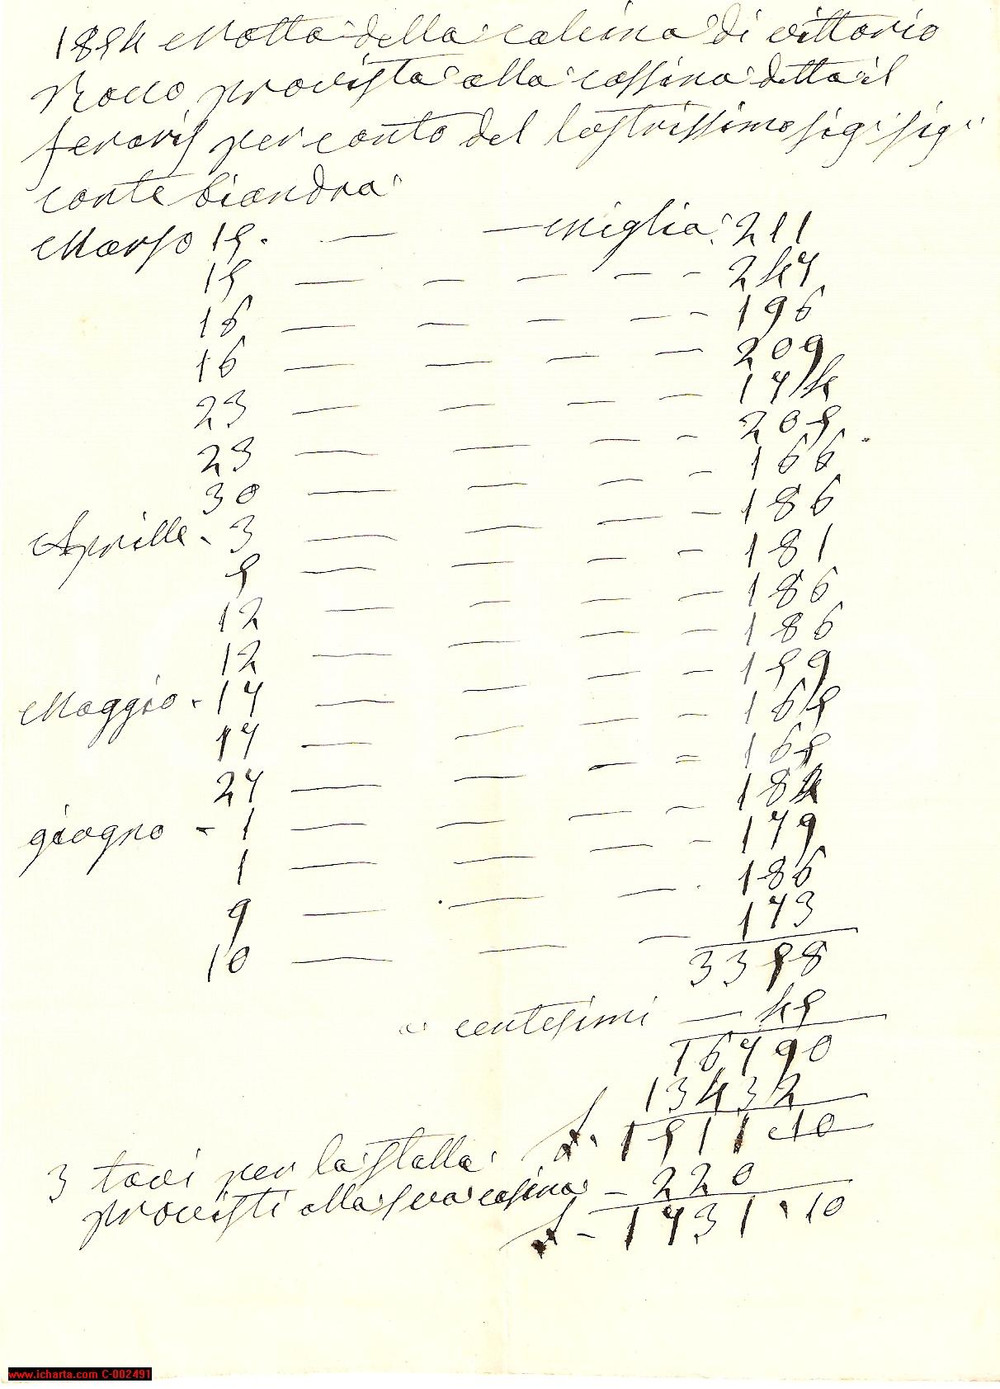 1854 Notta della calcina di vittorio
Rocco provista alla cassina detta il
feraris per conto del lostrissimo sig sig
conte biandra
Marso 15 — — miglia 211
15 — — — — 247
16 — — — — 196
16 — — — — 209
23 — — — — 174
23 — — — — 205
30 — — — — 166
Aprille - 3 — — — — 186
5 — — — — 181
12 — — — — 186
12 — — — — 186
Maggio - 17 — — — — 159
17 — — — — 165
27 — — — — 165
giugno - 1 — — — — 184
1 — — — — 179
9 — — — — 186
10 — — — — 173
3358
a centesimi — 45
16790
13432
1511 10
3 tovi per la stalla
provisti alla sua casina - 220
- 1731 . 10
www.icharta.com C-002491